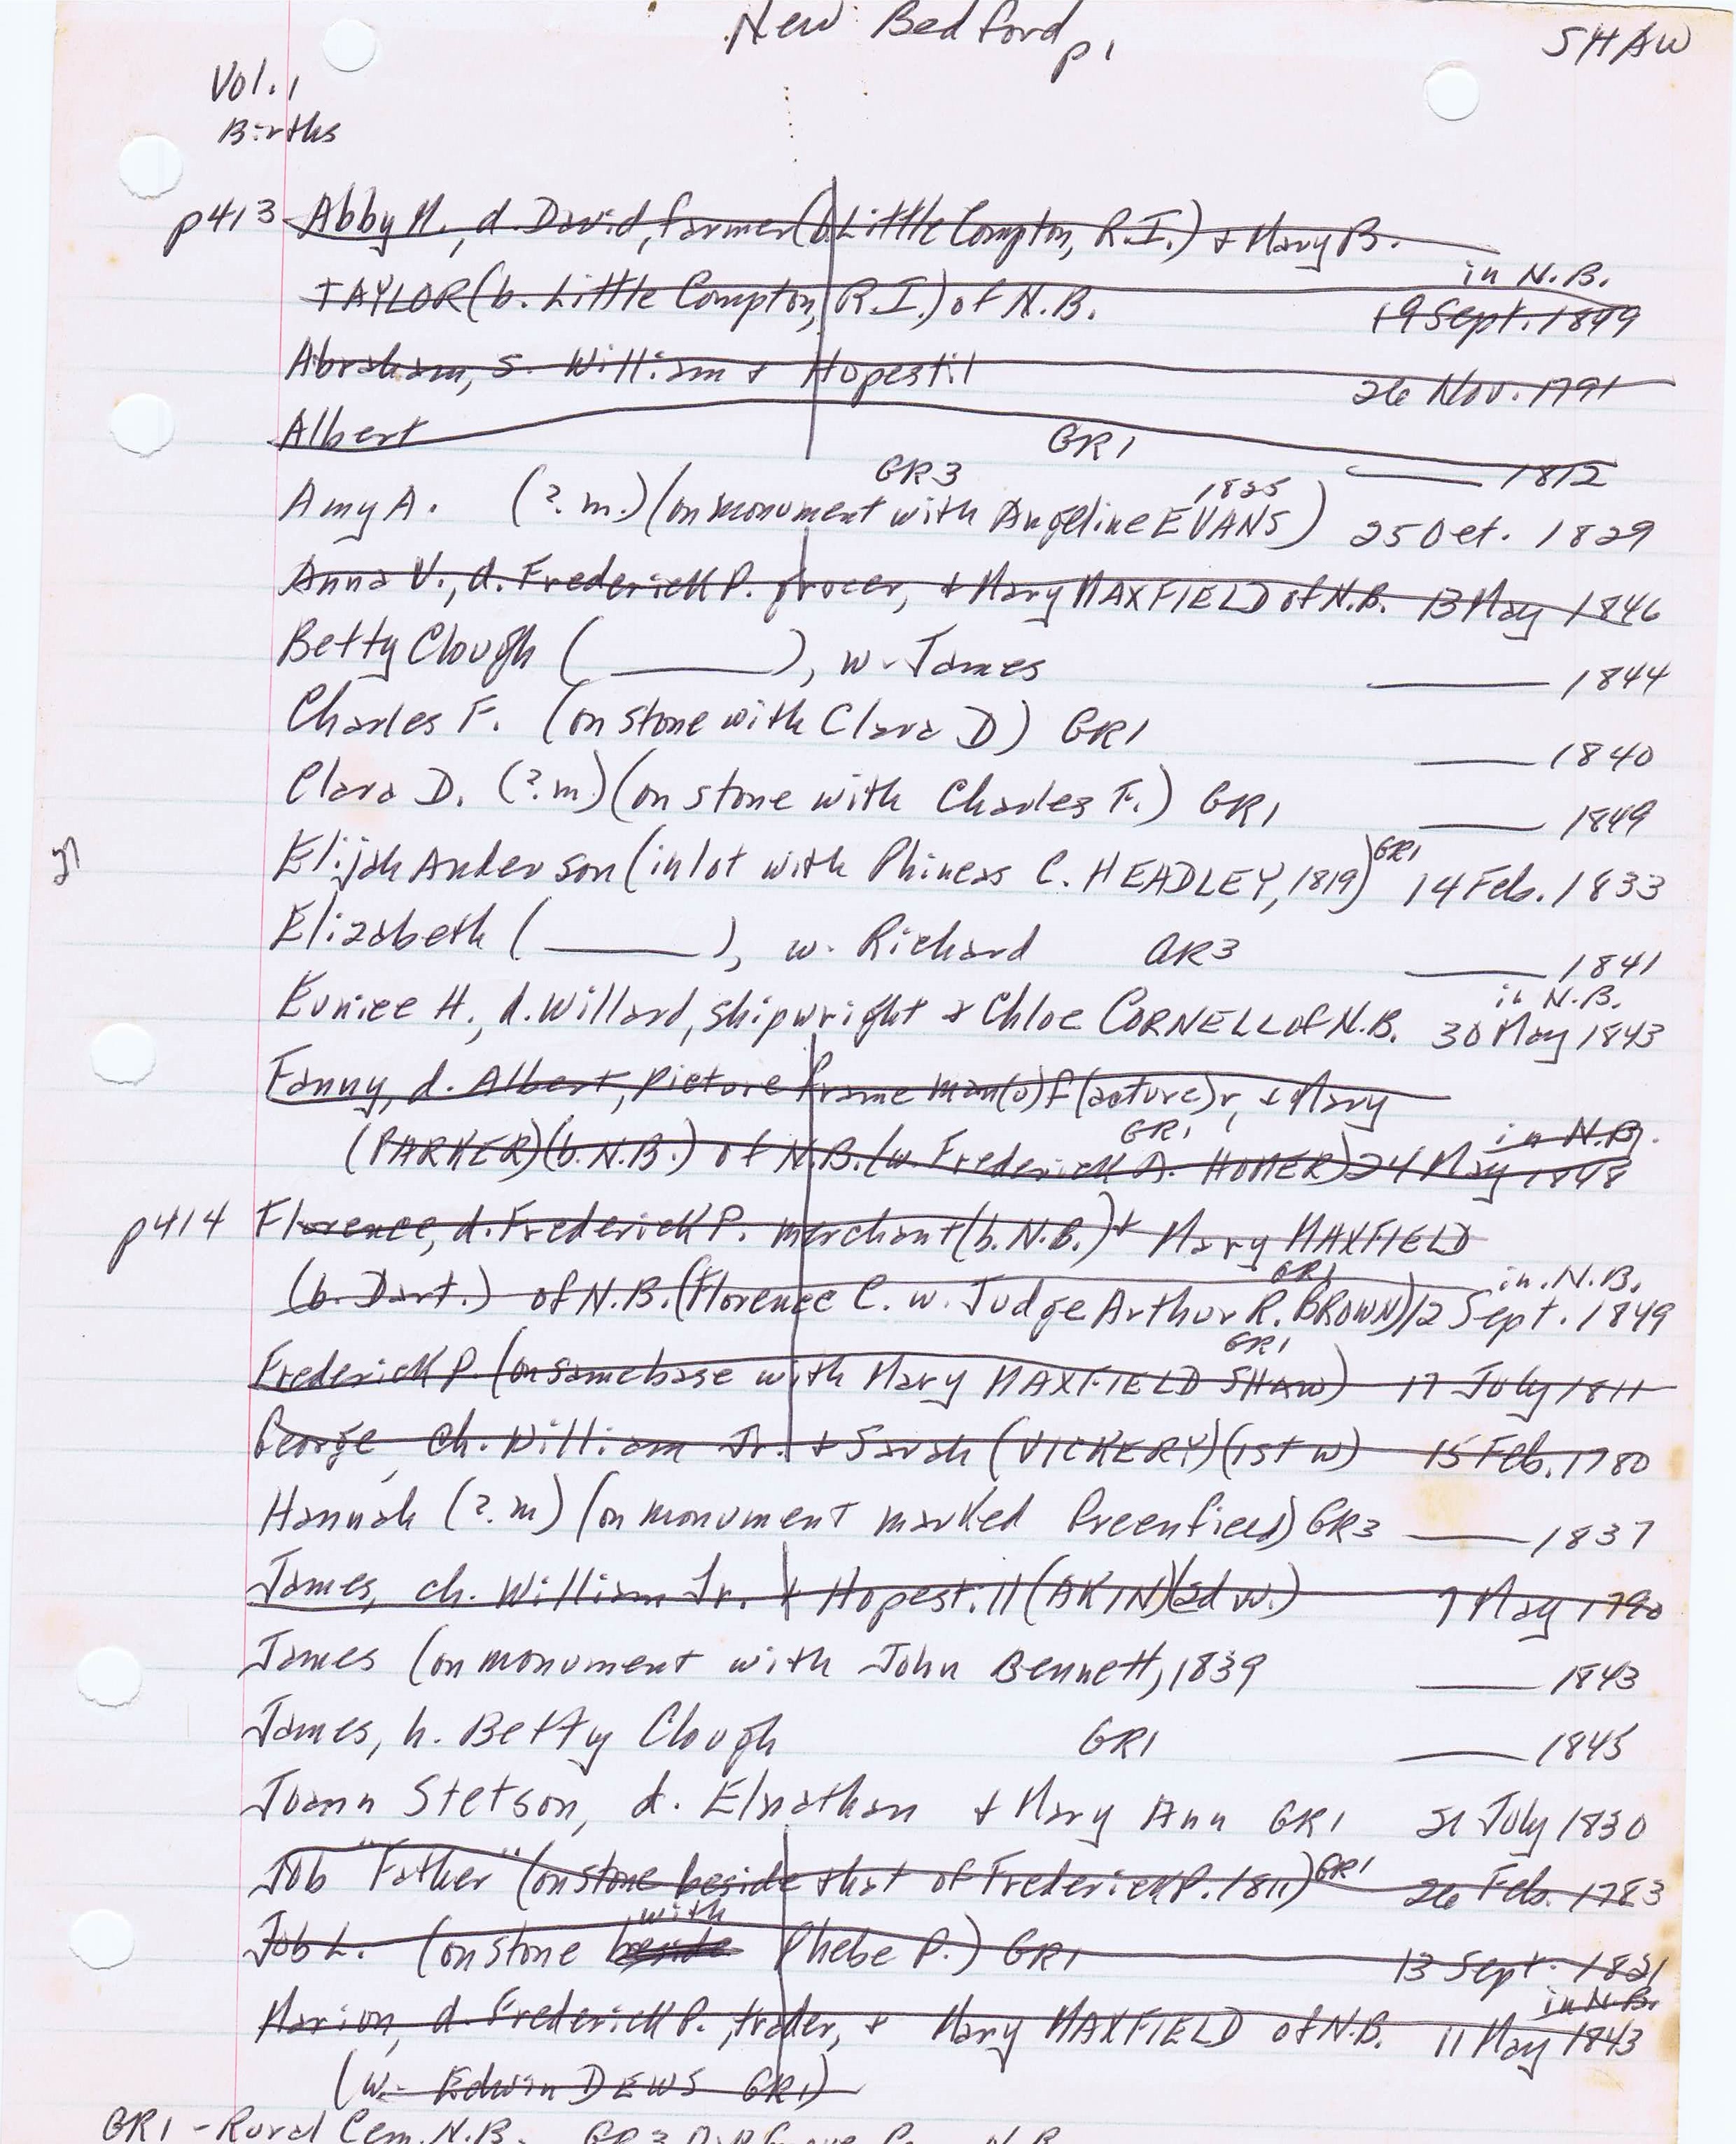 New Bedford p 1
SHAW
Vol. 1
Births
p413 Abby M., d. David, farmer (b. Little Compton, R.I.) + Mary B.
TAYLOR (b. Little Compton, R.I.) of N.B. in N.B. 19 Sept. 1849
Abraham, s. William + Hopestil 26 Nov. 1791
Albert GR1 —— 1812
Amy A. (?.m.) (on monument with Angeline EVANS 1825) GR3 25 Oct. 1829
Anna V., d. Frederick P. grocer, + Mary MAXFIELD of N.B. 13 May 1846
Betty Clough (______), w. James —— 1844
Charles F. (on stone with Clara D) GR1 —— 1840
Clara D. (?.m.) (on stone with Charles F.) GR1 —— 1849
Elijah Anderson (in lot with Phineas C. HEADLEY, 1819) GR1 14 Feb. 1833
Elizabeth (______), w. Richard GR3 —— 1841
Eunice H., d. Willard, shipwright + Chloe CORNELL of N.B. in N.B. 30 May 1843
Fanny, d. Albert, picture frame man(u)f(acture)r, + Mary
(PARKER) (b. N.B.) of N.B. (w. Frederick A. HOMER) GR1 in N.B. 24 May 1848
p414 Florence, d. Frederick P. merchant (b. N.B.) + Mary MAXFIELD
(b. Dart.) of N.B. (Florence C. w. Judge Arthur R. BROWN) GR1 in N.B. 12 Sept. 1849
Frederick P. (on same base with Mary MAXFIELD SHAW) GR1 17 July 1811
George, ch. William Jr. + Sarah (VICKERY) (1st w) 15 Feb. 1780
Hannah (?.m) (on monument marked Greenfield) GR3 —— 1837
James, ch. William Jr. + Hopestill (AKIN) (2d w.) 7 May 1790
James (on monument with John Bennett, 1839 —— 1843
James, h. Betty Clough GR1 —— 1845
Joann Stetson, d. Elnathan + Mary Ann GR1 21 July 1830
Job "Father" (on stone beside that of Frederick P. 1811) GR1 26 Feb. 1783
Job L. (on stone beside with Phebe P.) GR1 13 Sept. 1821
Marion, d. Frederick P., trader, + Mary MAXFIELD of N.B. in N.B. 11 May 1843
(w. Edwin DEWS GR1)
GR1 - Rural Cem. N.B. GR3 Grove N.B.